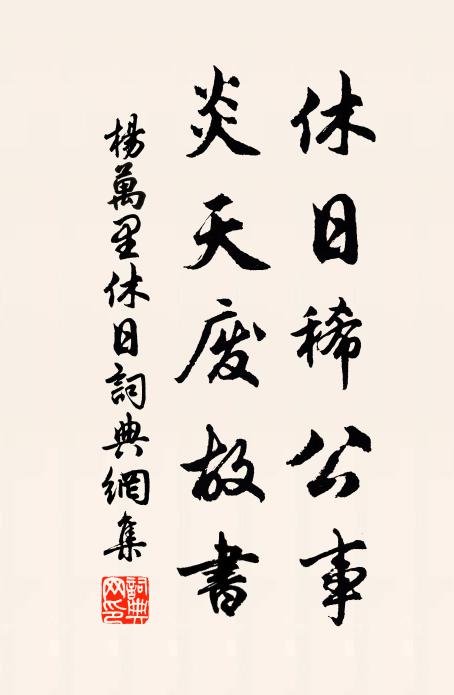 休日稀公事
炎天废故書
楊萬里休日詞典網集
詞典网印